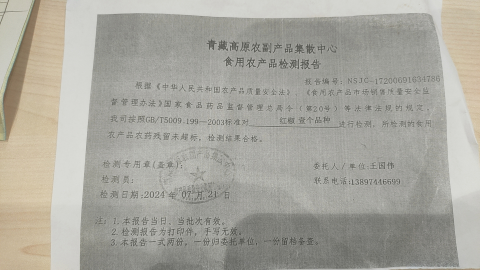 青藏高原农副产品集散中心
食用农产品检测报告
报告编号: NSJC-17200691634786
根据《中华人民共和国农产品质量安全法》、《食用农产品市场销售质量安全监
督管理办法》国家食品药品监督管理总局令(第20号)等法律法规的规定,
我司按照GB/T5009.199—2003标准对 红椒 壹个品种 进行检测,所检测的食用
农产品农药残留未超标,检测结果合格。
检测专用章(盖章):
委托人/单位:王国伟
检测员:
联系电话:13897446699
检测日期:2024 年 07 月 21 日
注: 1.本报告当日、当批次有效。
2.检测报告为打印件,手写无效。
3.本报告一式两份,一份归委托单位,一份留档备查。